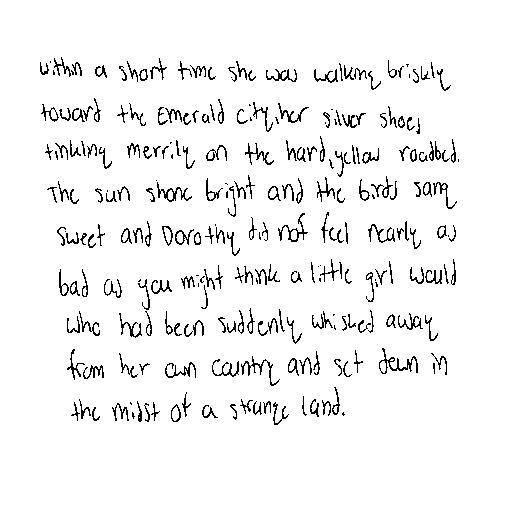 within a short time she was walking briskly
toward the Emerald City, her silver shoes
tinkling merrily on the hard, yellow roadbed.
The sun shone bright and the birds sang
sweet and Dorothy did not feel nearly as
bad as you might think a little girl would
who had been suddenly whisked away
from her own country and set down in
the midst of a strange land.